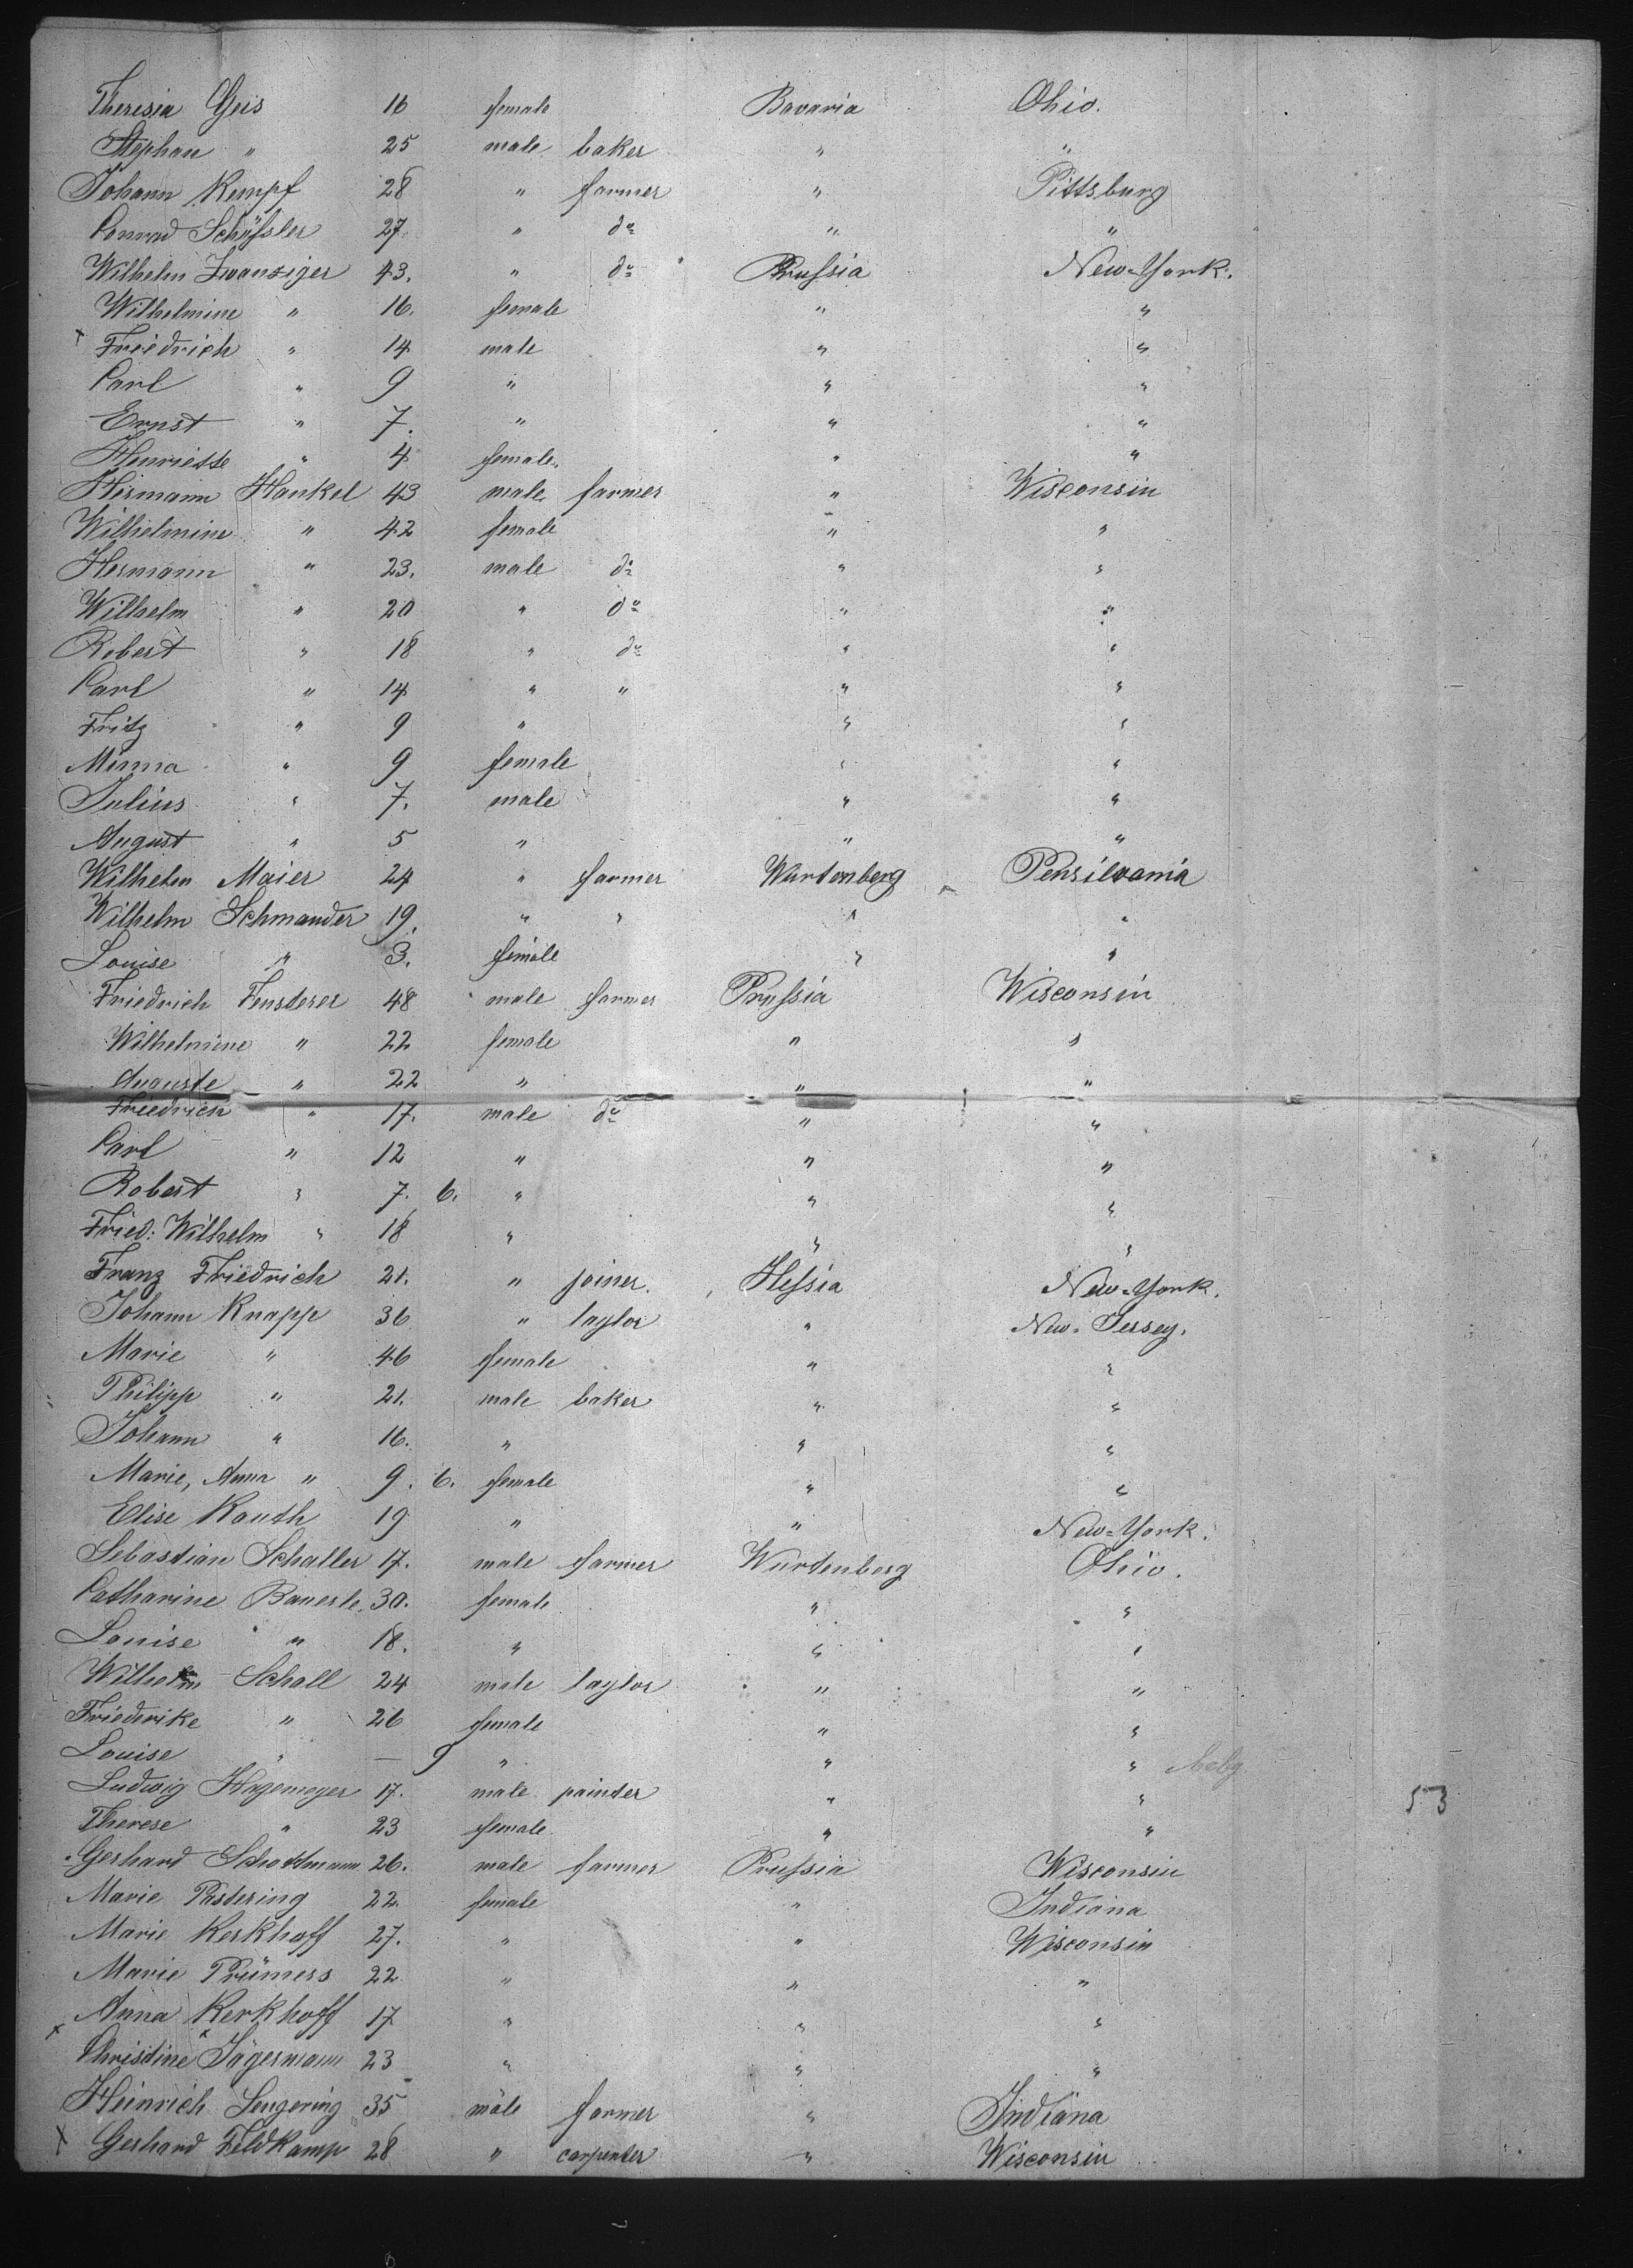 Theresia Geis 16 female Bavaria Ohio.
Stephan " 25 male baker " "
Johann Kempf 28 " farmer " Pittsburg
Conrad Schüssler 27. " do " "
Wilhelm Zwanziger 43. " do Prussia New-York.
Wilhelmine " 16. female " "
x Friedrich " 14 male " "
Carl " 9 " " "
Ernst " 7. " " "
Henriette " 4 female. " "
Hermann Hankel 43 male farmer " Wisconsin
Wilhelmine " 42 female " "
Hermann " 23. male do " "
Wilhelm " 20 " do " "
Robert " 18 " do " "
Carl " 14 " " " "
Fritz " 9 " " "
Minna " 9 female " "
Julius " 7. male " "
August " 5 " " "
Wilhelm Maier 24 " farmer Wurtenberg Pensilvania
Wilhelm Schmauder 19. " " " "
Louise " 3. female " "
Friedrich Fensterer 48 male farmer Prussia Wisconsin
Wilhelmine " 22 female " "
Auguste " 22 " " "
Friedrich " 17. male do " "
Carl " 12 " " "
Robert " 7. 6. " " "
Fried: Wilhelm " 18 " " "
Franz Friedrich 21. " joiner. Hessia New-York.
Johann Knapp 36 " taylor " New-Jersey.
Marie " 46 female " "
Philipp " 21. male baker " "
Johann " 16. " " "
Marie, Anna " 9. 6. female " "
Elise Kauth 19 " " New-York.
Sebastian Schaller 17. male farmer Wurtenberg Ohio.
Catharine Bauerle. 30. female " "
Louise " 18. " " "
Wilhelm Schall 24 male taylor " "
Friederike " 26 female " "
Louise " — 9 " " "
Ludwig Hagemeyer 17. male painter " " 53
Therese " 23 female " "
Gerhard Schottmann 26. male farmer Prussia Wisconsin
Marie Pastering 22. female " Indiana
Marie Kerkhoff 27. " " Wisconsin
Marie Prümers 22. " " "
x Anna Kerkhoff 17 " " "
Christine x Jägermann 23 " " "
Heinrich Lengering 35 male farmer " Indiana
x Gerhard Feldkamp 28 " carpenter " Wisconsin